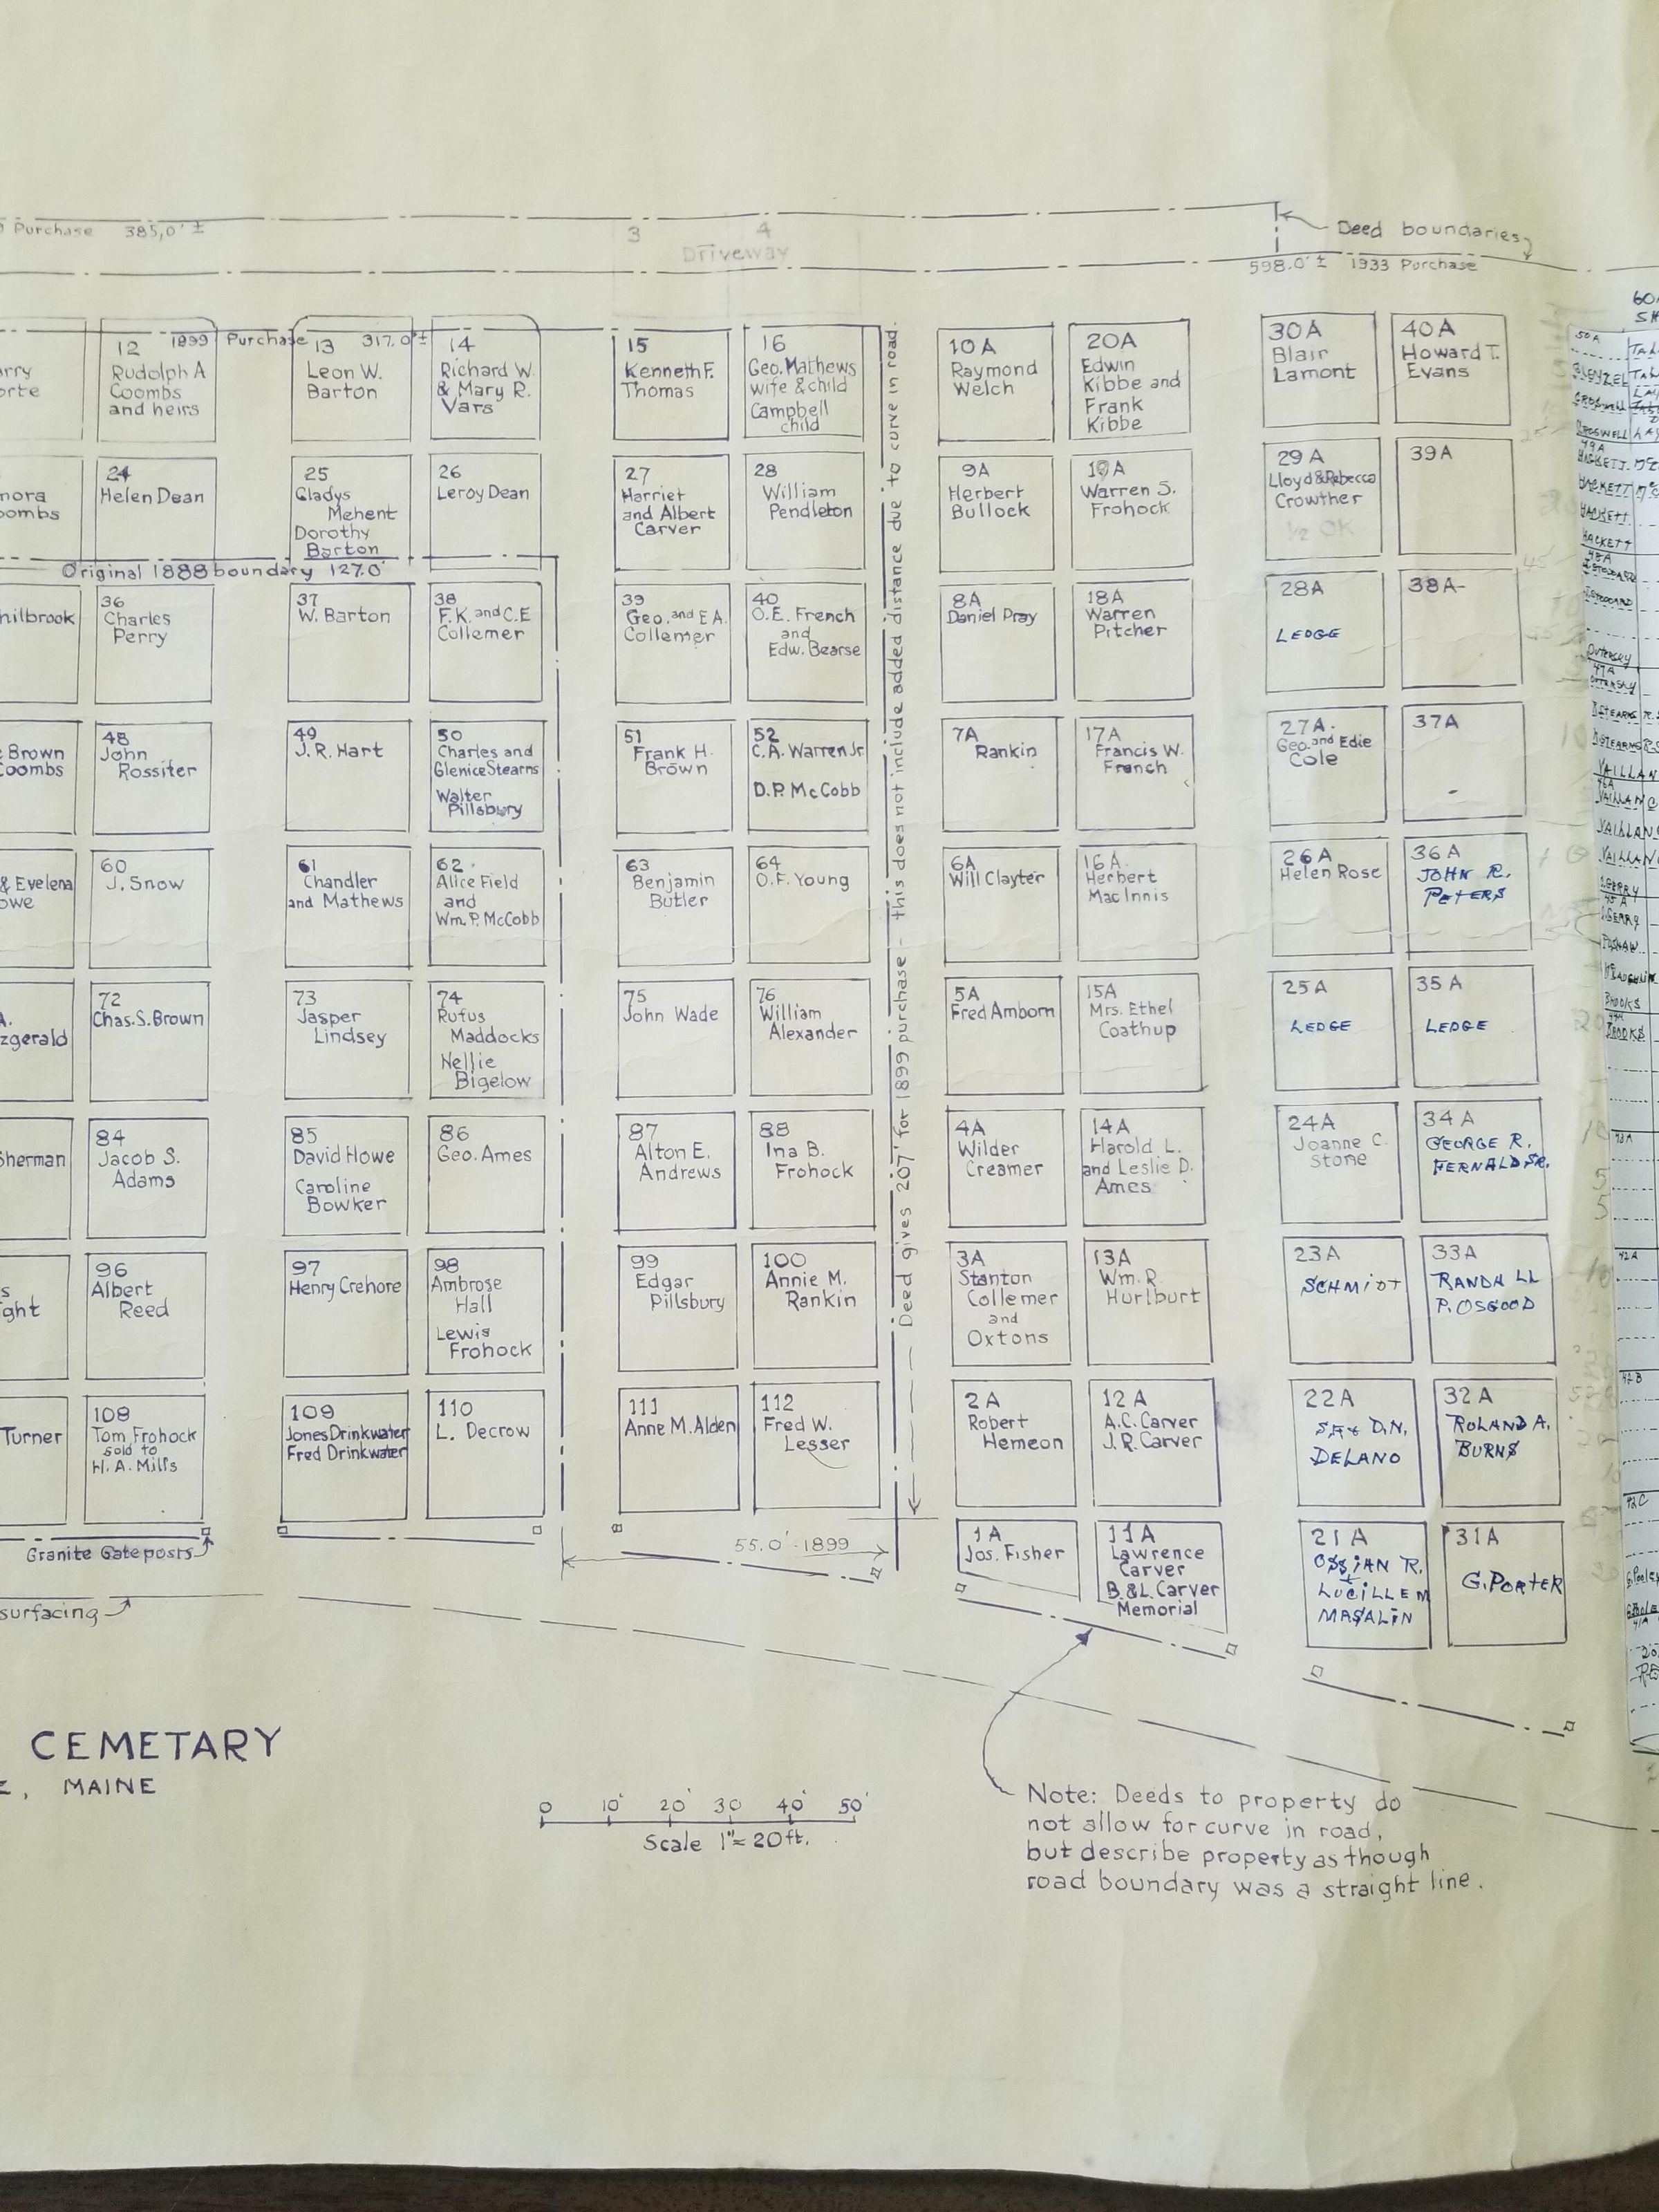 Purchase 385,0' ±
3
4
Driveway
Deed boundaries
598.0' ± 1933 Purchase
1899 Purchase 317.0' ±
12
Rudolph A
Coombs
and heirs
13
Leon W.
Barton
14
Richard W.
& Mary R.
Vars
15
Kenneth F.
Thomas
16
Geo. Mathews
wife & child
Campbell
child
10A
Raymond
Welch
20A
Edwin
Kibbe and
Frank
Kibbe
30A
Blair
Lamont
40A
Howard T.
Evans
24
Helen Dean
25
Gladys
Mehent
Dorothy
Barton
26
Leroy Dean
27
Harriet
and Albert
Carver
28
William
Pendleton
9A
Herbert
Bullock
19A
Warren S.
Frohock
29A
Lloyd & Rebecca
Crowther
1/2 OK
39A
Original 1888 boundary 127.0'
36
Charles
Perry
37
W. Barton
38
F.K. and C.E
Collemer
39
Geo. and E.A.
Collemer
40
O.E. French
and
Edw. Bearse
8A
Daniel Pray
18A
Warren
Pitcher
28A
LEDGE
38A
Brown
Coombs
48
John
Rossiter
49
J.R. Hart
50
Charles and
Glenice Stearns
Walter
Pillsbury
51
Frank H.
Brown
52
C.A. Warren Jr
D.P. McCobb
7A
Rankin
17A
Francis W.
French
27A
Geo. and Edie
Cole
37A
& Evelena
60
J. Snow
61
Chandler
and Mathews
62
Alice Field
and
Wm. P. McCobb
63
Benjamin
Butler
64
O.F. Young
6A
Will Clayter
16A
Herbert
MacInnis
26A
Helen Rose
36A
JOHN R.
PETERS
72
Chas. S. Brown
73
Jasper
Lindsey
74
Rufus
Maddocks
Nellie
Bigelow
75
John Wade
76
William
Alexander
5A
Fred Amborn
15A
Mrs. Ethel
Coathup
25A
LEDGE
35A
LEDGE
Sherman
84
Jacob S.
Adams
85
David Howe
Caroline
Bowker
86
Geo. Ames
87
Alton E.
Andrews
88
Ina B.
Frohock
4A
Wilder
Creamer
14A
Harold L.
and Leslie D.
Ames
24A
Joanne C.
Stone
34A
GEORGE R.
FERNALD SR.
96
Albert
Reed
97
Henry Crehore
98
Ambrose
Hall
Lewis
Frohock
99
Edgar
Pillsbury
100
Annie M.
Rankin
3A
Stanton
Collemer
and
Oxtons
13A
Wm. R.
Hurlburt
23A
SCHMIDT
33A
RANDALL
P. OSGOOD
Turner
108
Tom Frohock
sold to
H. A. Mills
109
Jones Drinkwater
Fred Drinkwater
110
L. Decrow
111
Anne M. Alden
112
Fred W.
Lesser
2A
Robert
Hemeon
12A
A.C. Carver
J.R. Carver
22A
D.N.
DELANO
32A
ROLAND A.
BURNS
1A
Jos. Fisher
11A
Lawrence
Carver
B. & L. Carver
Memorial
21A
OSSIAN R.
+
LUCILLE M
MASALIN
31A
G. PORTER
Deed gives 207' for 1899 purchase - this does not include added distance due to curve in road.
Granite Gateposts
55.0' - 1899
surfacing
CEMETARY
MAINE
0 10' 20' 30 40' 50'
Scale 1"= 20 ft.
Note: Deeds to property do
not allow for curve in road,
but describe property as though
road boundary was a straight line.
50A
HACKETT
HACKETT
BROOKS
BROOKS
43A
42A
42B
42C